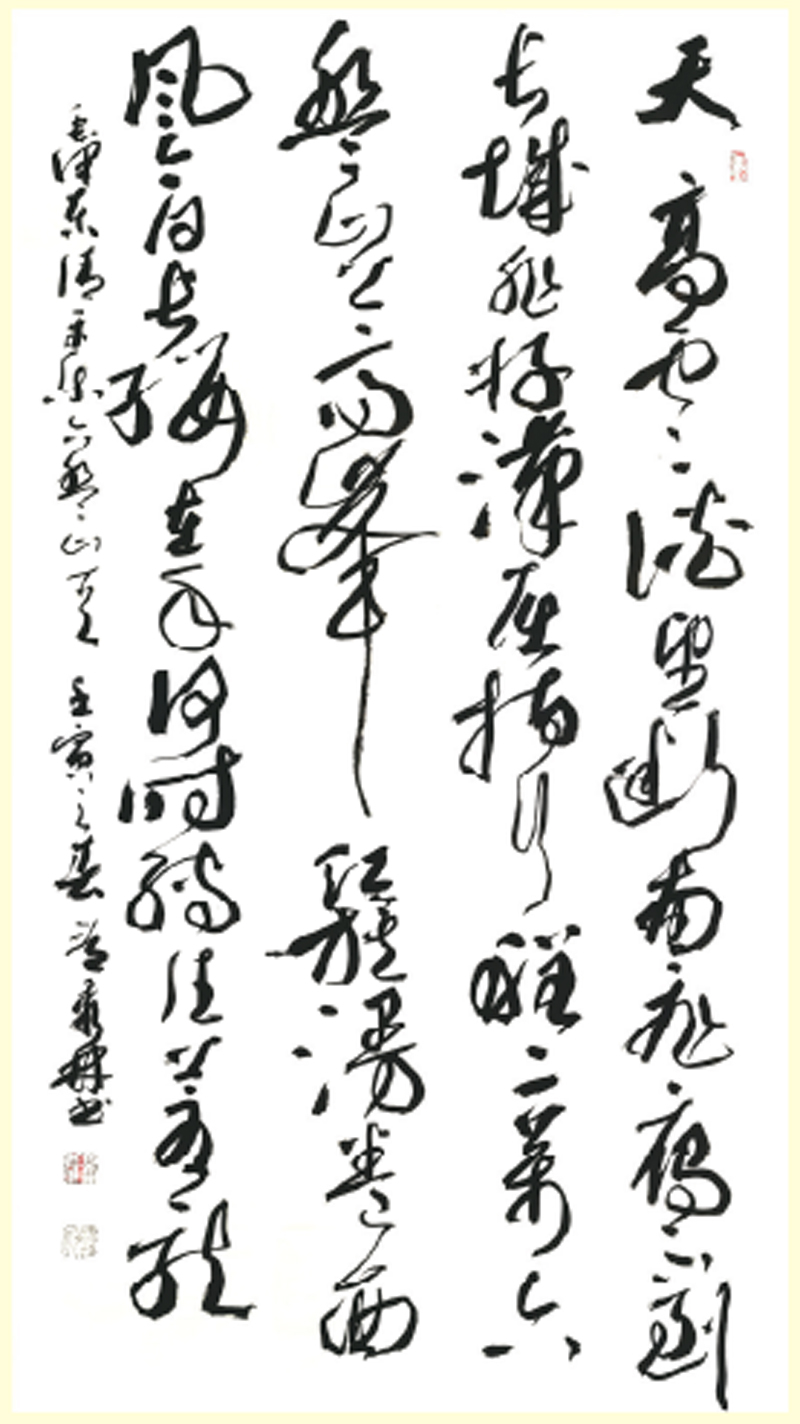 天高云淡望断南飛雁不到
长城非好漢屈指行程二萬六
盤山上高峰紅旗漫卷西
風今日长缨在手何时缚住苍龍
毛泽东清平乐六盤山 壬寅之春 书